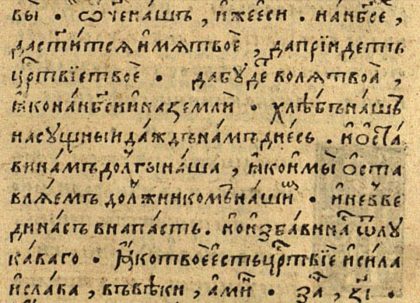 вы · ѿче на́шъ , и́же е҆сѝ · на нб҃се ,
да ст҃и́тсѧ и́мѧ твоѐ , да прїи́детъ
црⷭ҇твїе твоѐ · да бу́дⷮе во́лѧ твоа̀ ,
ꙗ҆́ко на нб҃сѝ и на землѝ · хлѣ́бъ на́шъ
насу́щный да́ждь на́мъ дне́сь · и҆ ѡ҆ста́
ви на́мъ до́лгы на́ша , ꙗ҆́ко и мы̀ ѡ҆ста
влѧ́емъ до́лжнико́мъ на́шиⷨ · и не въве
ди на́съ въ на́пасть · но и҆зба́ви на́ⷭ ѿ лу
ка́ваго · ꙗ҆́ко твоѐ е҆́сть црⷭ҇твїе и си́ла
и сла́ва , въ вѣ́ки , а҆ми́ⷩ · за҃ , з҃і ·